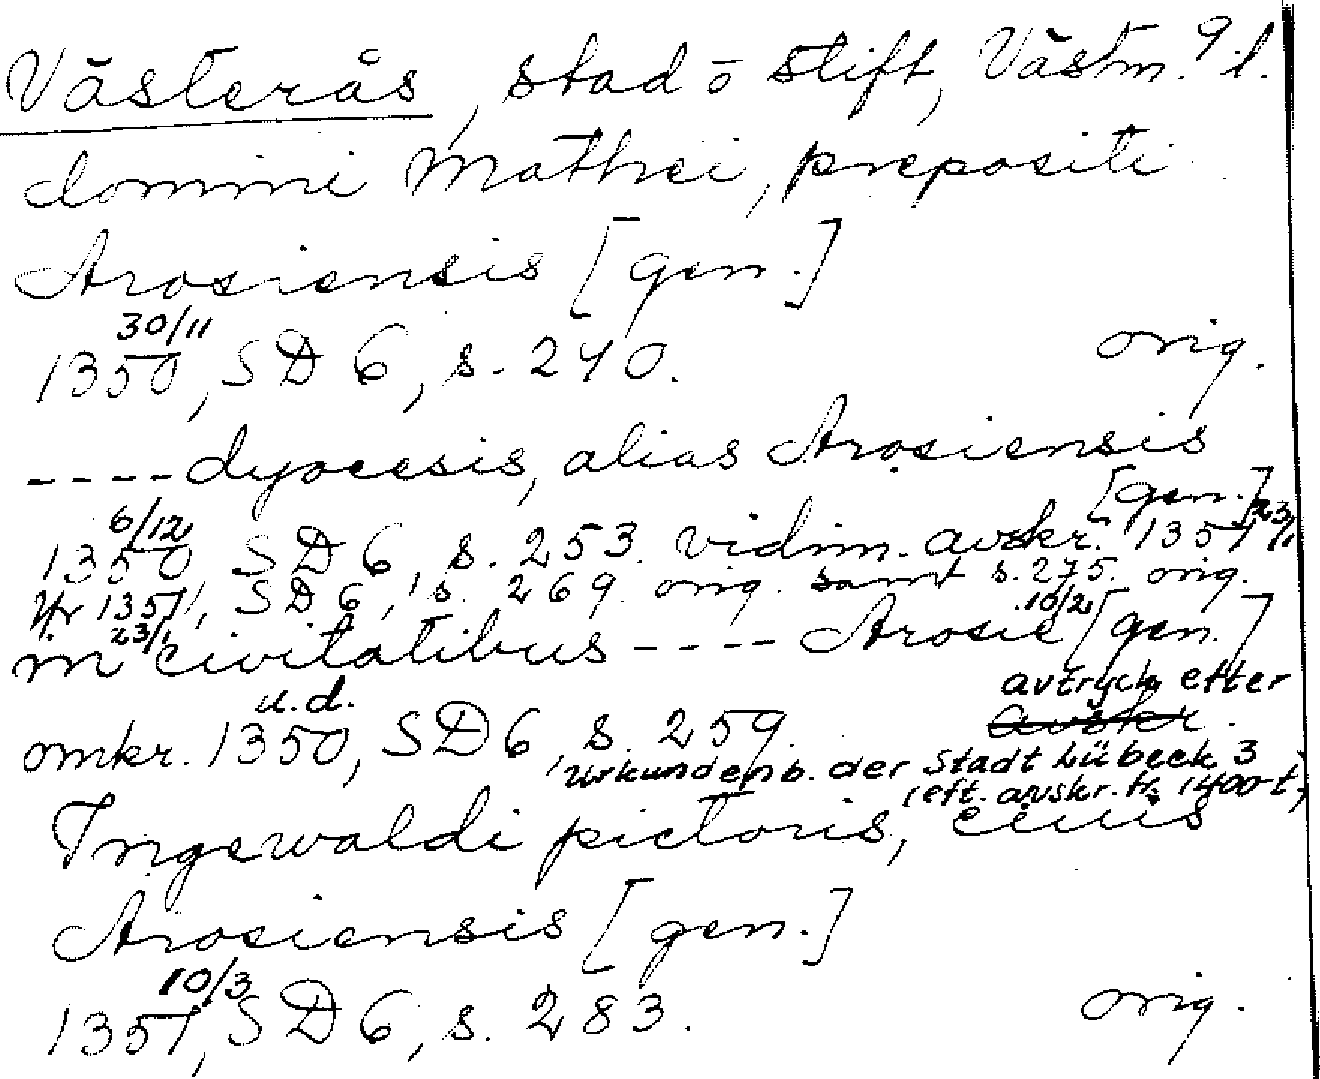 Västerås, stad o stift, Västm. 9 l.
domini Mathei, prepositi
Arosiensis [gen.]
30/11
1350, SD 6, s. 240. orig.
---- dyocesis, alias Arosiensis
[gen.]
6/12 23/1
1350 SD 6, s. 253. vidim. avskr. 1351
1351, SD 6, s. 269. orig. samt s. 275. orig.
23/1 10/2
in civitatibus ---- Arosie [gen.]
u.d. avtryck efter
omkr. 1350, SD 6, s. 259. avskr.
Urkundenb. der Stadt Lübeck 3
(eft. avskr. fr. 1400-t.)
Ingewaldi pictoris, ciuis
Arosiensis [gen.]
10/3
1351, SD 6, s. 283. orig.